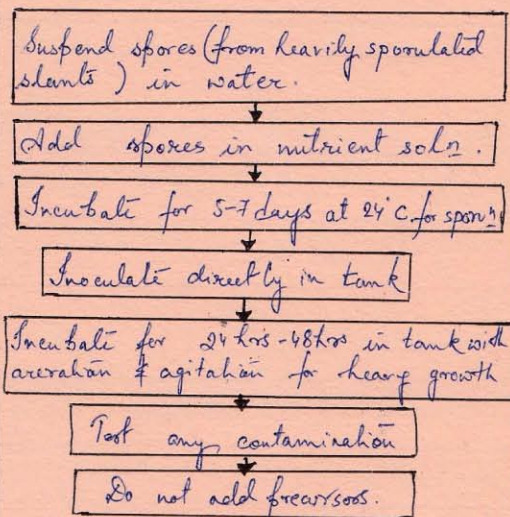 Suspend spores (from heavily sporulated
slants) in water.
Add spores in nutrient soln.
Incubate for 5-7 days at 24°C. for sporn
Inoculate directly in tank
Incubate for 24hrs-48hrs in tank with
areration & agitation for heavy growth
Test any contamination
Do not add precursors.